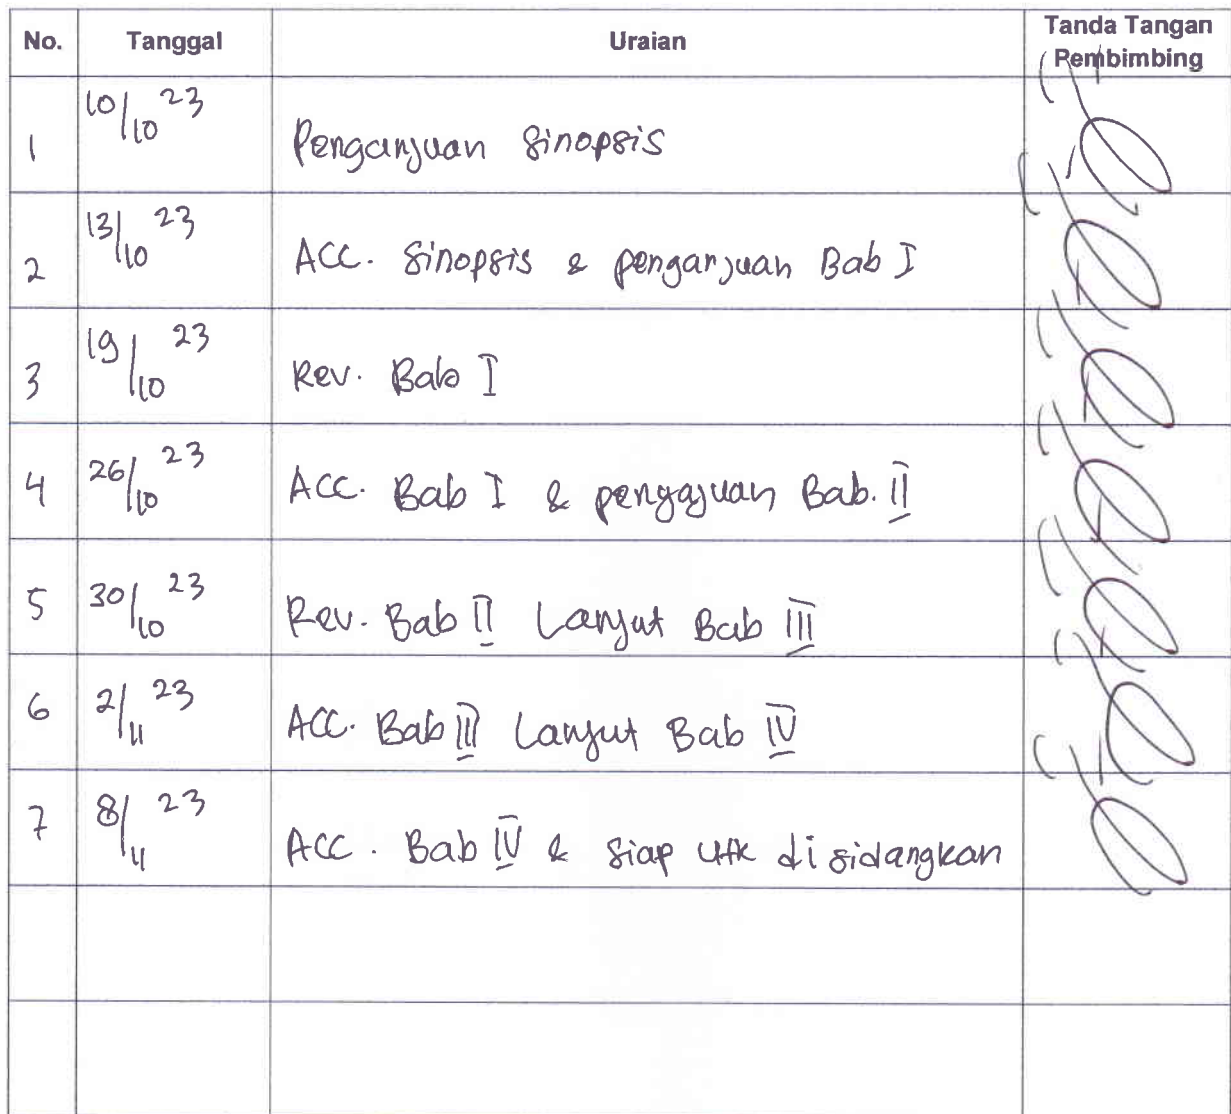 No. Tanggal Uraian Tanda Tangan Pembimbing
1 10/10 23 Penganjuan Sinopsis
2 13/10 23 ACC. Sinopsis & penganjuan Bab I
3 19/10 23 Rev. Bab I
4 26/10 23 ACC. Bab I & pengajuan Bab. II
5 30/10 23 Rev. Bab II Lanjut Bab III
6 2/11 23 ACC. Bab III Lanjut Bab IV
7 8/11 23 ACC. Bab IV & siap utk disidangkan